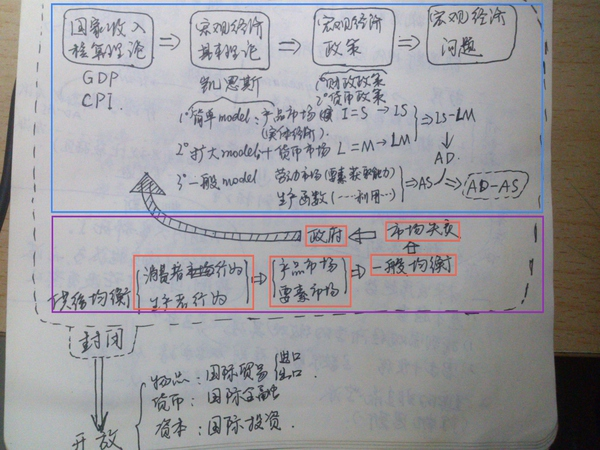 国家收入核算理论 ⇒ 宏观经济基本理论 ⇒ 宏观经济政策 ⇒ 宏观经济问题
GDP
CPI.
凯恩斯
1°财政政策
2°货币政策
1°简单model:产品市场 I=S→IS
(实体经济).
2°扩大model:+货币市场 L=M→LM
⇒IS-LM
AD
3°一般model 劳动市场(要素获取能力)
生产函数(……利用…)
⇒AS ⇒ AD-AS
政府 ⇐ 市场失灵
供给均衡
消费者市场行为
生产者行为
⇒ 产品市场
要素市场
⇒ 一般均衡
封闭
开放
物品:国际贸易 进口
出口.
货币:国际金融
资本:国际投资.